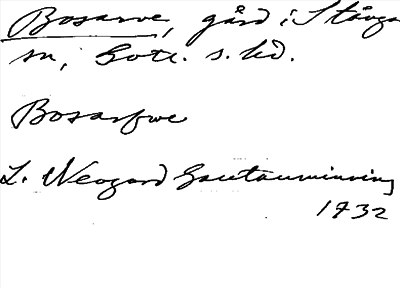 Bosarve, gård i Stånga
sn, Gotl. s. hd.
Bosarfwe
L. Neogard Gautauminning
1732